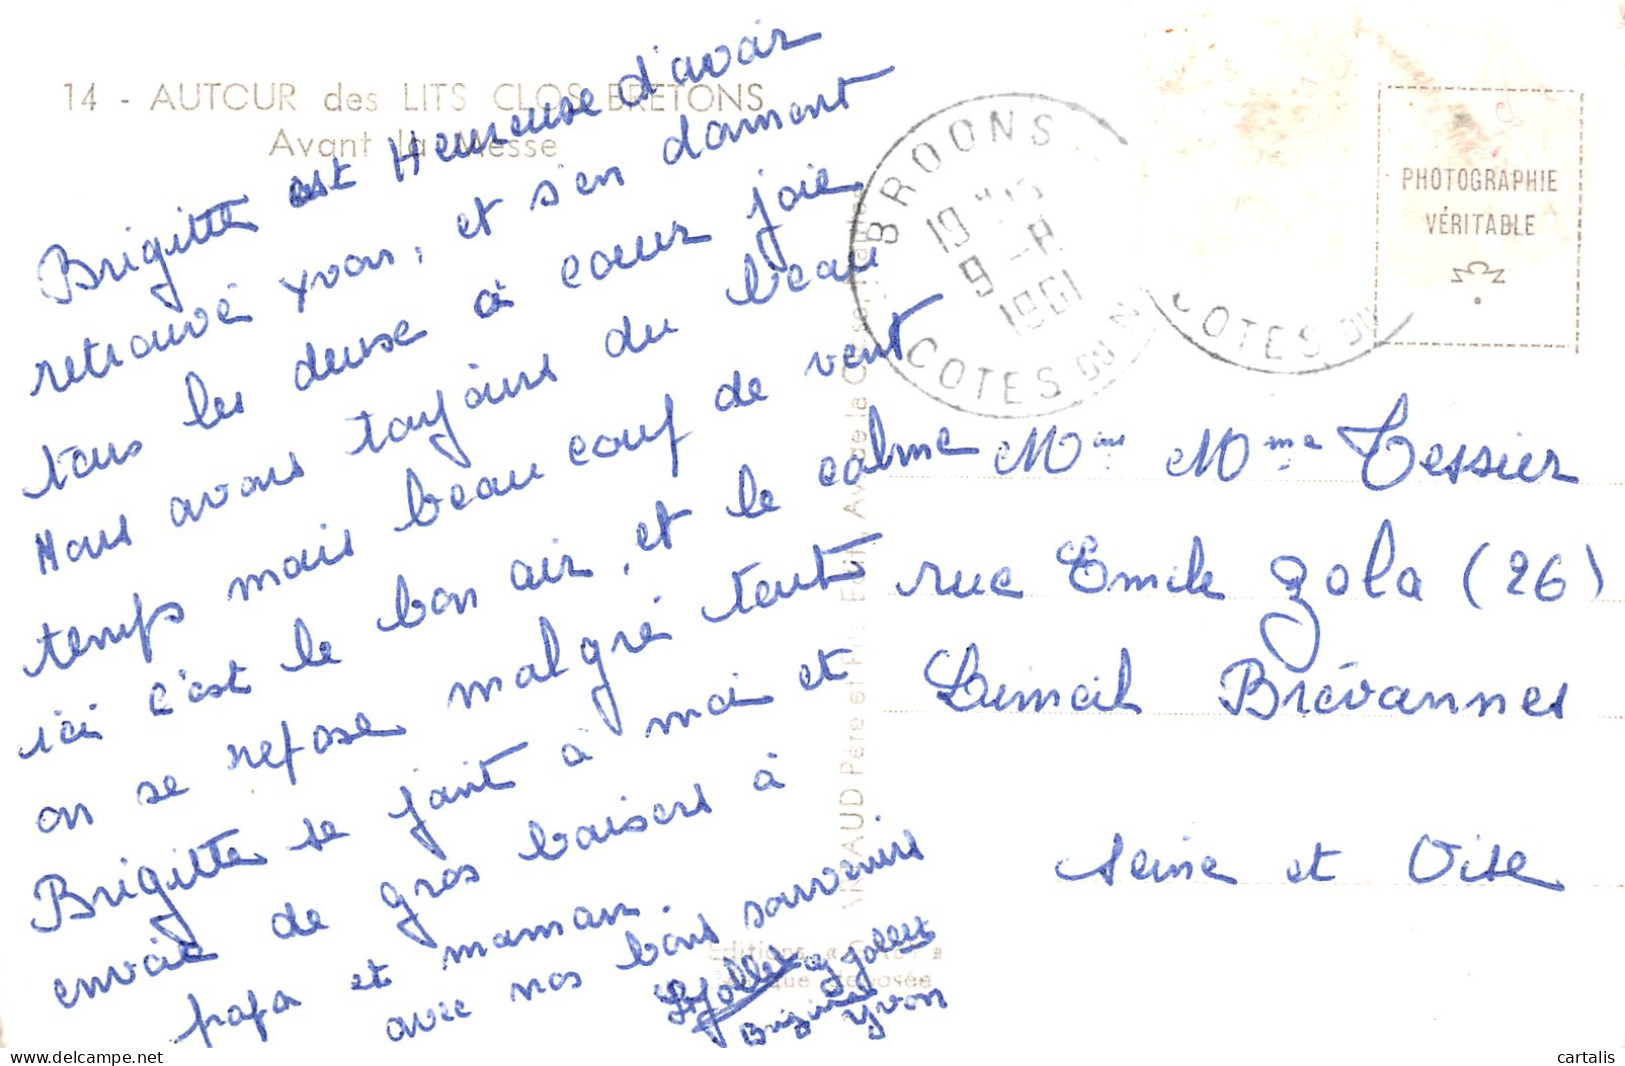 14 - AUTOUR des LITS CLOS BRETONS
Avant la Messe
Brigitte est Heureuse d'avoir
retrouvé Yvon, et s'en donnent
tous les deuse à coeur joie
Nous avons toujours du beau
temps mais beau coup de vent
ici c'est le bon air, et le calme
on se repose malgré tout
Brigitte se joint à moi et
envoie de gros baisers à
papa et maman.
avec nos bons souvenirs
Brigitte
Yvon
BROONS
19 H15
9 -8
1961
COTES DU N
COTES DU
PHOTOGRAPHIE
VÉRITABLE
Mr Mme Tessier
rue Emile Zola (26)
Limeil Brévannes
Seine et Oise
Editions
déposée
cartalis